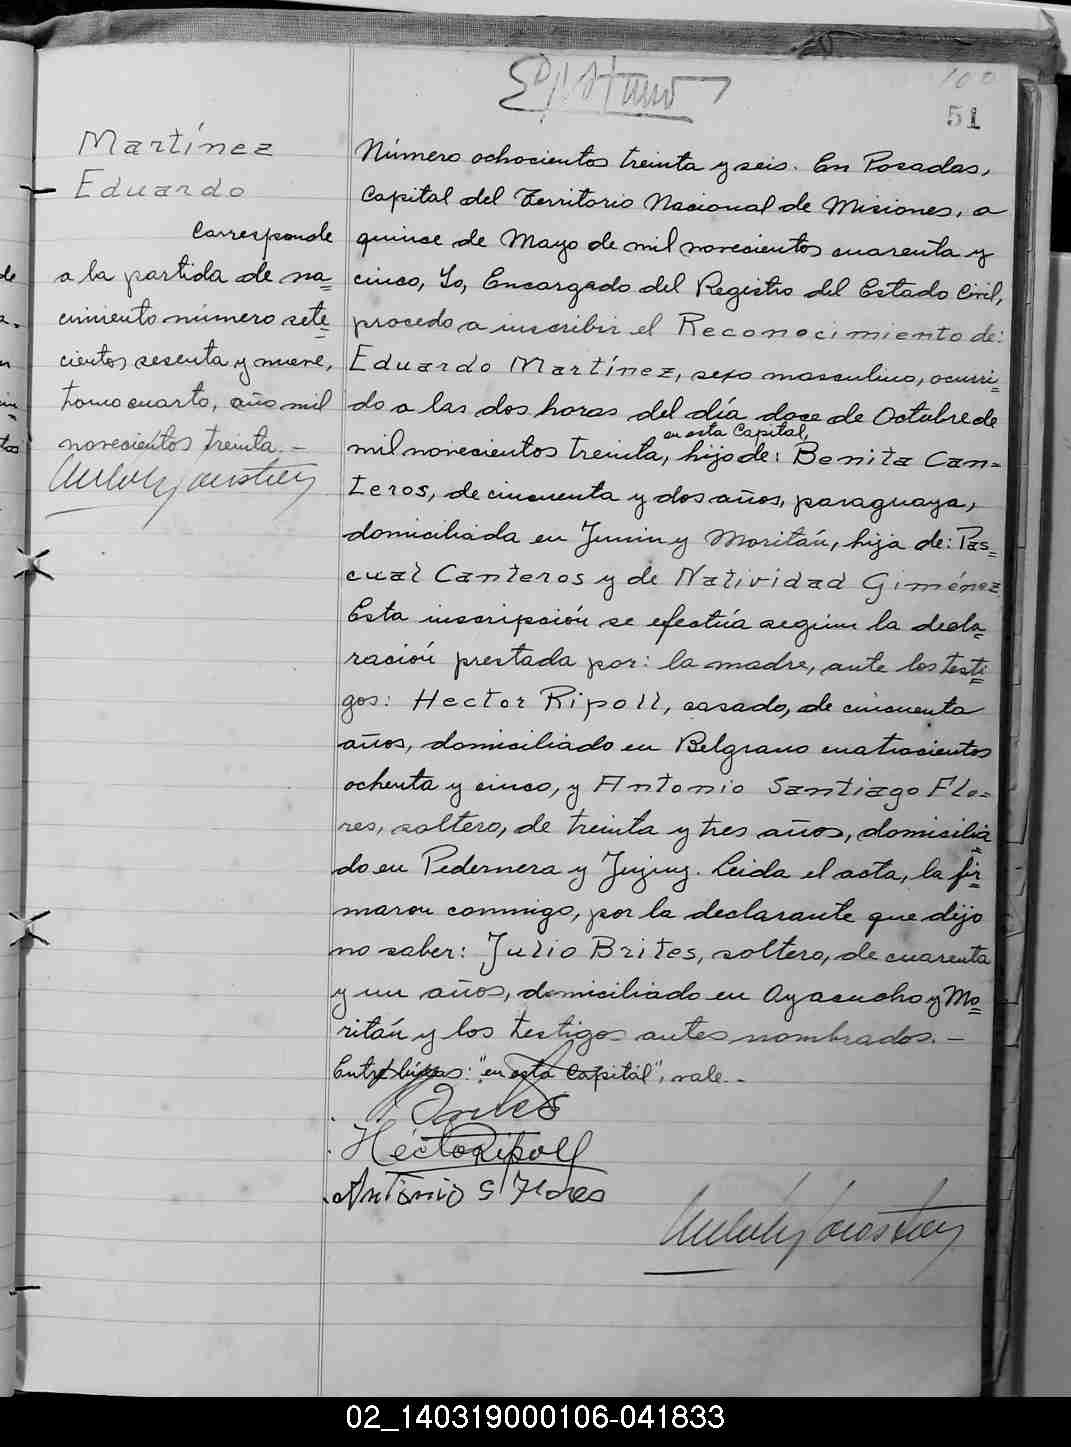 100
51
Martínez
Eduardo
Corresponde
a la partida de na=
cimiento número sete=
cientos sesenta y nueve,
tomo cuarto, año mil
novecientos treinta.—
Número ochocientos treinta y seis. En Posadas,
Capital del Territorio Nacional de Misiones, a
quince de Mayo de mil novecientos cuarenta y
cinco, Yo, Encargado del Registro del Estado Civil,
procedo a inscribir el Reconocimiento de:
Eduardo Martínez, sexo masculino, ocurri=
do a las dos horas del día doce de Octubre de
en esta Capital,
mil novecientos treinta, hijo de: Benita Can=
teros, de cincuenta y dos años, paraguaya,
domiciliada en Junin y Moritán, hija de: Pas=
cual Canteros y de Natividad Giménez
Esta inscripción se efectúa segun la decla=
ración prestada por: la madre, ante los testi=
gos: Hector Ripoll, casado, de cincuenta
años, domiciliado en Belgrano cuatrocientos
ochenta y cinco, y Antonio Santiago Flo=
res, soltero, de treinta y tres años, domicilia=
do en Pedernera y Jujuy. Leida el acta, la fir=
maron conmigo, por la declarante que dijo
no saber: Julio Brites, soltero, de cuarenta
y un años, domiciliado en Ayacucho y Mo=
ritán y los testigos antes nombrados.—
Entre líneas: "en esta Capital", vale.—
Héctor Ripoll
Antonio S Flores
02_140319000106-041833